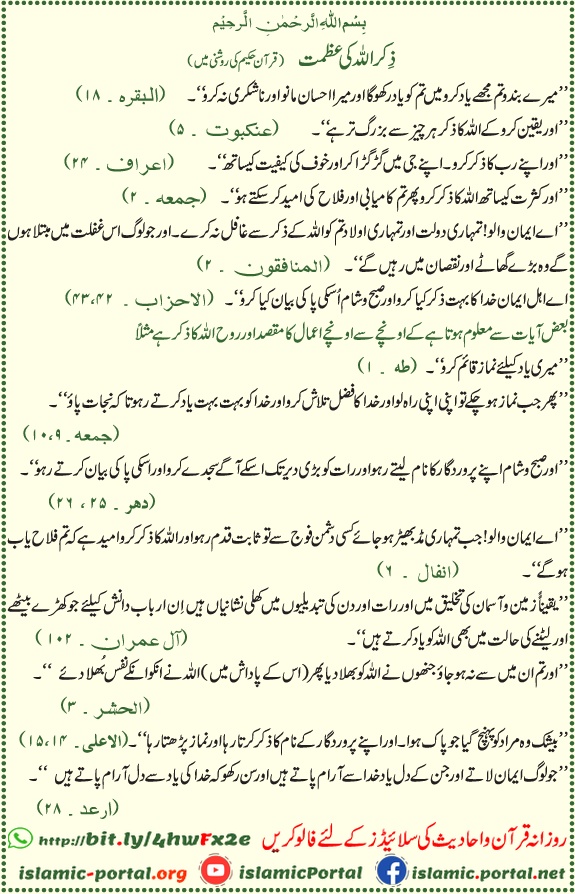 بِسْمِ اللّٰهِ الرَّحْمٰنِ الرَّحِیْمِ
ذِکر اللہ کی عظمت (قرآن حکیم کی روشنی میں)
’’میرے بندو تم مجھے یاد کرو میں تم کو یاد رکھوگا اور میرا احسان مانو اور ناشکری نہ کرو‘‘۔ (البقرہ ۔ ۱۸)
’’اور یقین کرو کے اللہ کا ذکر ہر چیز سے بزرگ تر ہے‘‘۔ (عنکبوت ۔ ۵)
’’اور اپنے رب کا ذکر کرو۔ اپنے جی میں گڑگڑا کر اور خوف کی کیفیت کیساتھ‘‘۔ (اعراف ۔ ۲۴)
’’اور کثرت کیساتھ اللہ کا ذکر کرو پھر تم کامیابی اور فلاح کی امید کرسکتے ہو‘‘۔ (جمعہ ۔ ۲)
’’اے ایمان والو! تمہاری دولت اور تمہاری اولاد تم کو اللہ کے ذکر سے غافل نہ کرے۔ اور جولوگ اس غفلت میں مبتلا ہوں
گے وہ بڑے گھاٹے اور نقصان میں رہیں گے‘‘۔ (المنافقون ۔ ۲)
اے اہل ایمان خدا کا بہت ذکر کیا کرو اور صبح و شام اُسکی پاکی بیان کیا کرو‘‘۔ (الاحزاب ۔ ۴۳،۴۲)
بعض آیات سے معلوم ہوتا ہے کے اونچے سے اونچے اعمال کا مقصد اور روح اللہ کا ذکر ہے مثلاً
’’میری یاد کیلئے نماز قائم کرو‘‘۔ (طہ ۔ ۱)
’’پھر جب نماز ہو چکے تو اپنی اپنی راہ لو اور خدا کا فضل تلاش کرو اور خدا کو بہت بہت یاد کرتے رہو تا کہ نجات پاؤ‘‘۔
(جمعہ۔۱۰،۹)
’’اور صبح و شام اپنے پروردگار کا نام لیتے رہو اور رات کو بڑی دیر تک اسکے آگے سجدے کرو اور اسکی پاکی بیان کرتے رہو‘‘۔
(دھر ۔ ۲۵، ۲۶)
’’اے ایمان والو! جب تمہاری مڈبھیڑ ہو جائے کسی دشمن فوج سے تو ثابت قدم رہو اور اللہ کا ذکر کرو امید ہے کہ تم فلاح یاب
ہوگے‘‘۔ (انفال ۔ ۶)
’’یقیناً زمین و آسمان کی تخلیق میں اور رات اور دن کی تبدیلیوں میں کھلی نشانیاں ہیں اِن ارباب دانش کیلئے جو کھڑے بیٹھے
اور لیٹنے کی حالت میں بھی اللہ کو یاد کرتے ہیں‘‘۔ (آل عمران ۔ ۱۰۲)
’’اور تم ان میں سے نہ ہو جاؤ جنھوں نے اللہ کو بھلا دیا پھر (اس کے پاداش میں) اللہ نے انکو انکے نفس بُھلا دئے ‘‘۔
(الحشر ۔ ۳)
’’بیشک وہ مراد کو پہنچ گیا جو پاک ہوا۔ اور اپنے پروردگار کے نام کا ذکر کرتا رہا اور نماز پڑھتا رہا‘‘۔ (الاعلی۔ ۱۵،۱۴)
’’جولوگ ایمان لاتے اور جن کے دل یاد خدا سے آرام پاتے ہیں اور سن رکھو کہ خدا کی یاد سے دل آرام پاتے ہیں ‘‘۔
(ارعد ۔ ۲۸)
روزانہ قرآن و احادیث کی سلائیڈز کے لئے فالو کریں http://bit.ly/4hwFx2e
islamic-portal.org islamicPortal islamic.portal.net